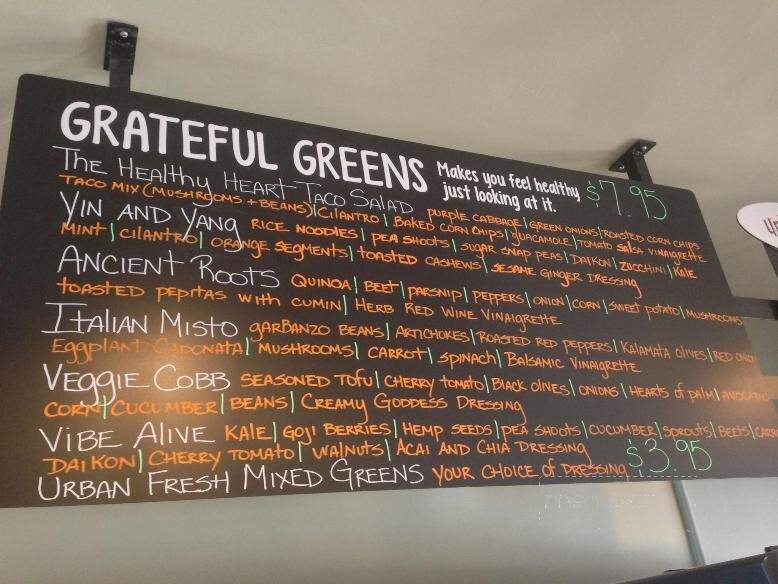 GRATEFUL GREENS Makes you feel healthy $7.95
just looking at it.
The Healthy Heart Taco Salad purple cabbage | green onions | roasted corn chips
Taco mix (mushrooms + beans) | cilantro | baked corn chips | guacamole | tomato salsa vinaigrette
Yin and Yang rice noodles | pea shoots | sugar snap peas | daikon | zucchini | kale
mint | cilantro | orange segments | toasted cashews | sesame ginger dressing
Ancient Roots quinoa | beet | parsnip | peppers | onion | corn | sweet potato | mushrooms
toasted pepitas with cumin | Herb Red Wine Vinaigrette
Italian Misto garbanzo beans | artichokes | roasted red peppers | kalamata olives | red
Eggplant Caponata | mushrooms | carrot | spinach | Balsamic Vinaigrette
Veggie Cobb seasoned tofu | cherry tomato | black olives | onions | hearts of palm | avocado
corn | cucumber | beans | Creamy Goddess Dressing
Vibe Alive kale | goji berries | hemp seeds | pea shoots | cucumber | sprouts | beets |
Daikon | cherry tomato | walnuts | Acai and Chia Dressing
Urban Fresh Mixed Greens your choice of dressing $3.95